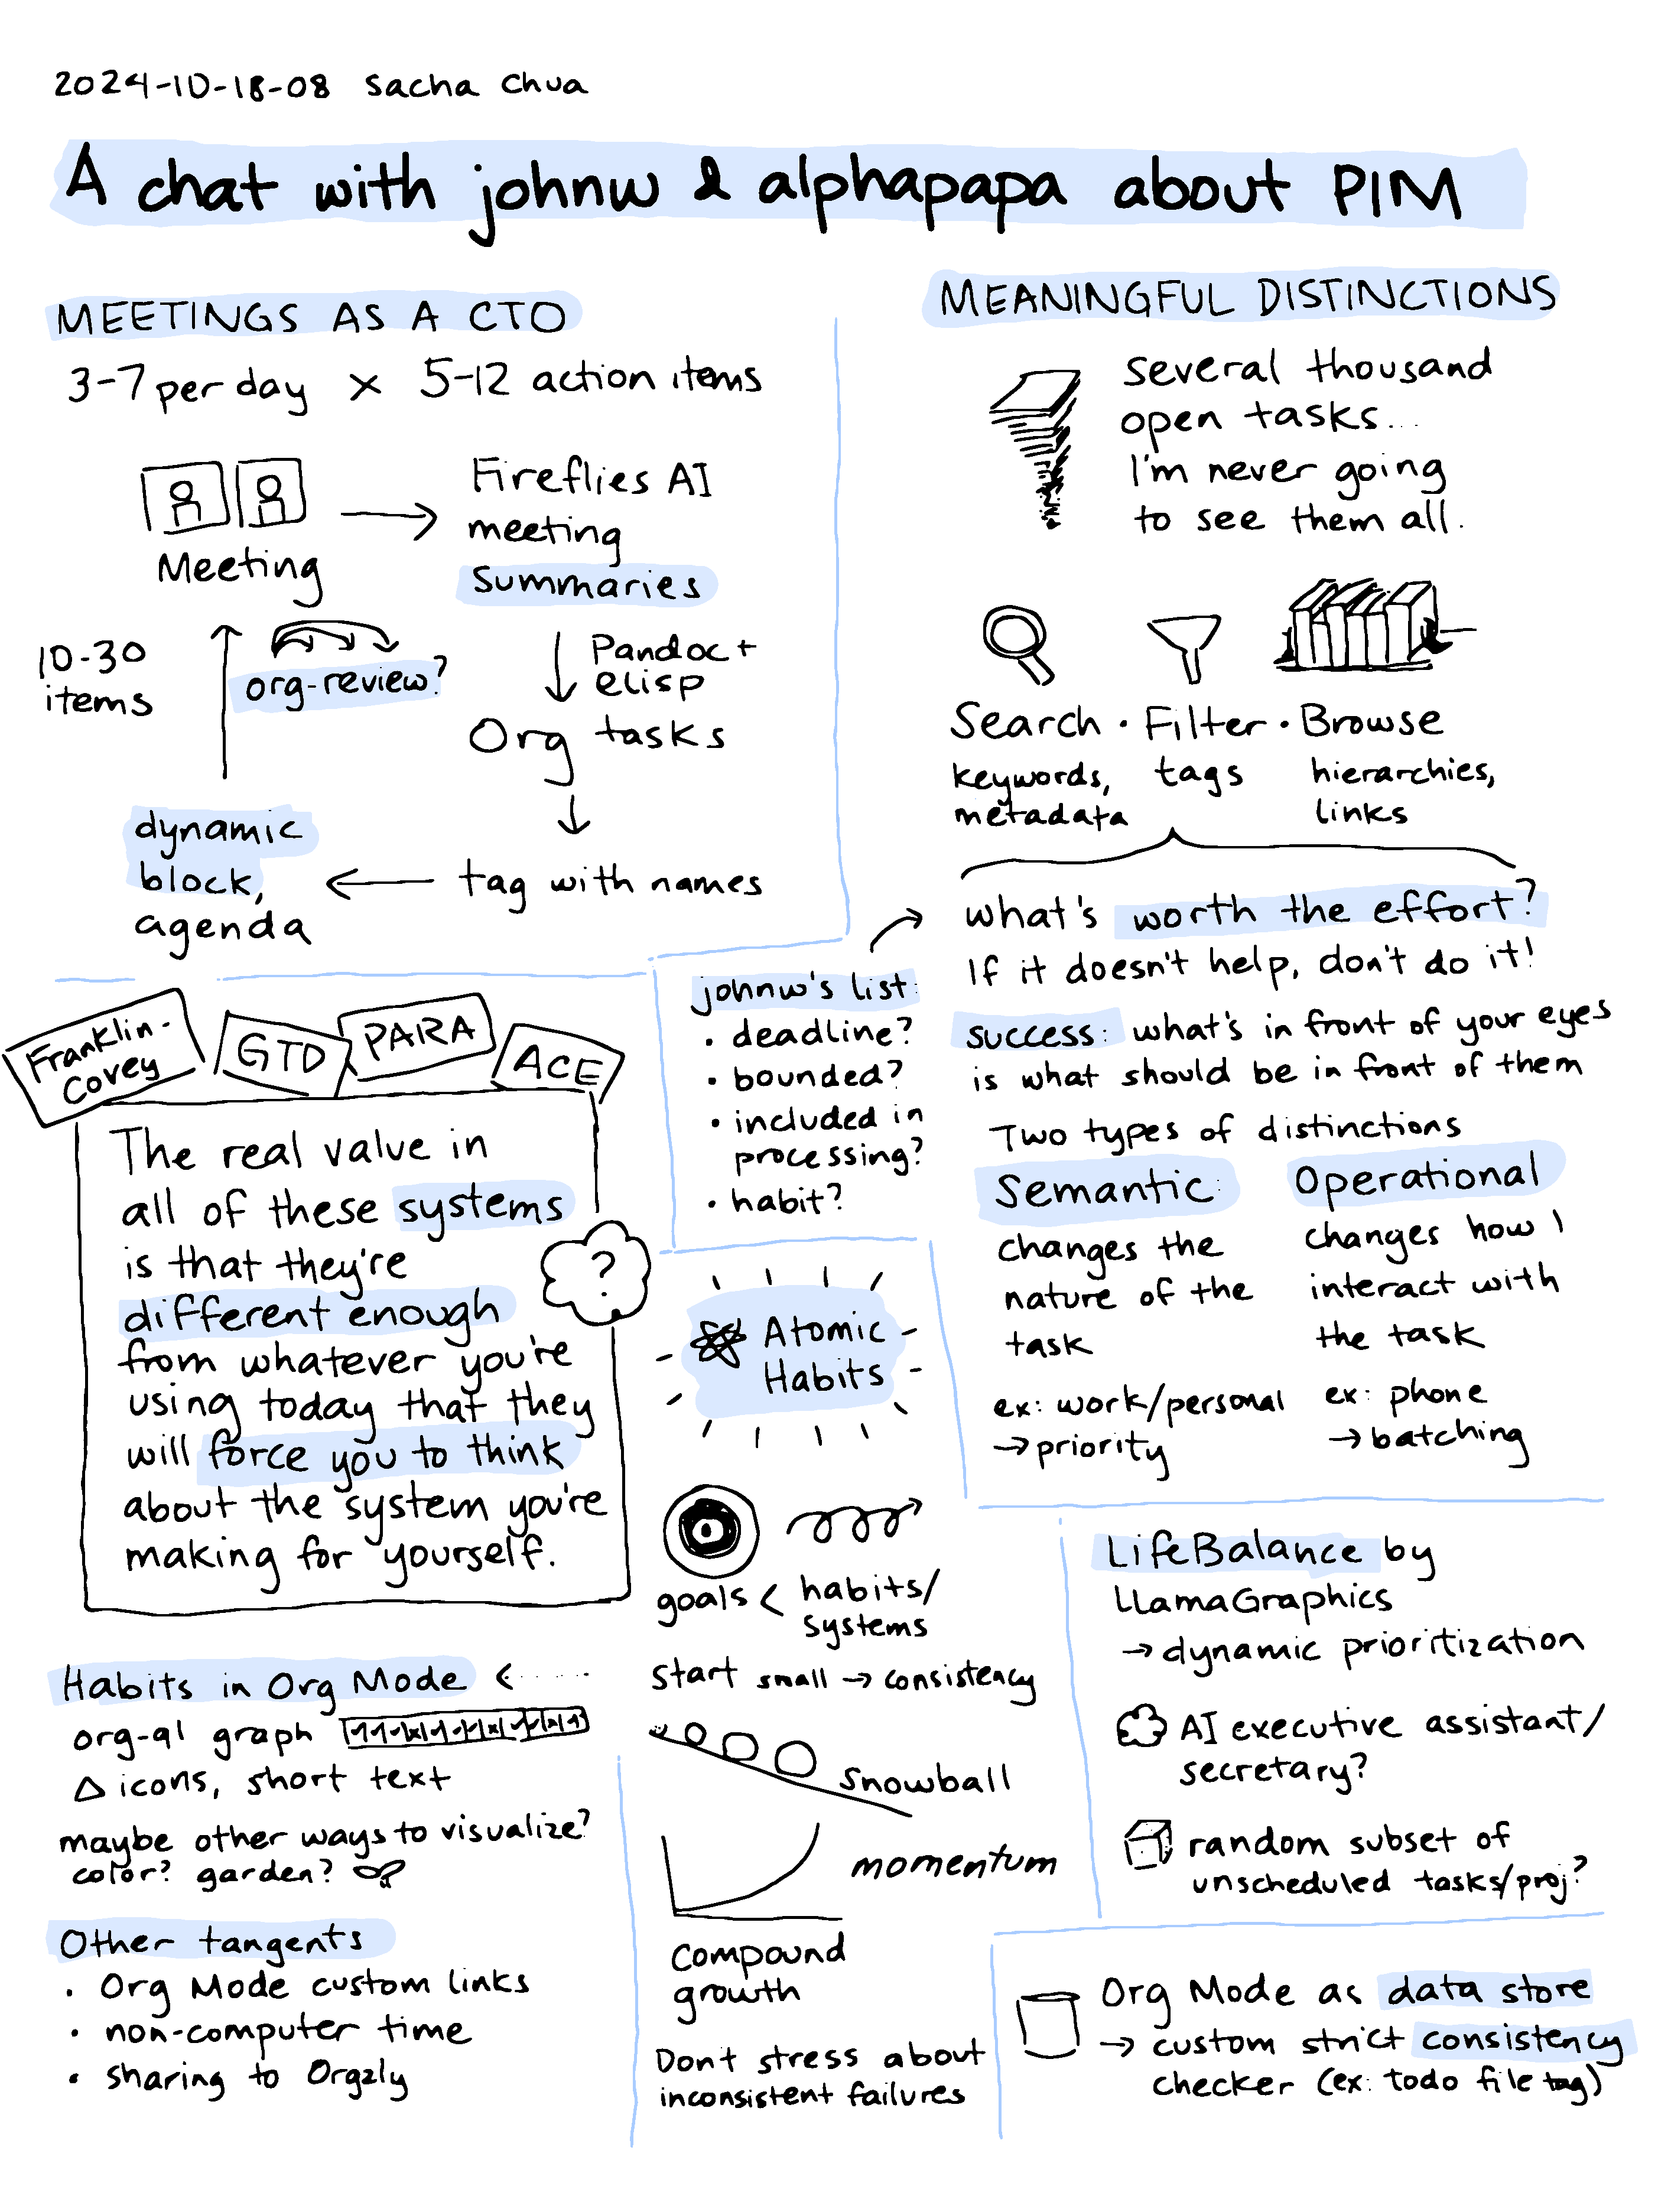 2024-10-18-08 Sacha Chua
A chat with johnw & alphapapa about PIM
MEETINGS AS A CTO
3-7 per day x 5-12 action items
Meeting
Fireflies AI
meeting
summaries
Pandoc +
elisp
Org tasks
tag with names
dynamic
block,
agenda
10-30
items
org-review?
MEANINGFUL DISTINCTIONS
Several thousand
open tasks...
I'm never going
to see them all.
Search · Filter · Browse
keywords,
metadata
tags
hierarchies,
links
what's worth the effort?
If it doesn't help, don't do it!
success: what's in front of your eyes
is what should be in front of them
Two types of distinctions
Semantic:
changes the
nature of the
task
ex: work/personal
→ priority
Operational
changes how I
interact with
the task
ex: phone
→ batching
johnw's list:
• deadline?
• bounded?
• included in
processing?
• habit?
Franklin-
Covey
GTD
PARA
ACE
The real value in
all of these systems
is that they're
different enough
from whatever you're
using today that they
will force you to think
about the system you're
making for yourself.
?
Atomic
Habits
goals < habits/
systems
Start small → consistency
Snowball
momentum
Compound
growth
Don't stress about
inconsistent failures
Habits in Org Mode
org-ql graph
icons, short text
maybe other ways to visualize?
color? garden?
Other tangents
• Org Mode custom links
• non-computer time
• sharing to Orgzly
LifeBalance by
LlamaGraphics
→ dynamic prioritization
AI executive assistant/
secretary?
random subset of
unscheduled tasks/proj?
Org Mode as data store
→ custom strict consistency
checker (ex: todo file tag)